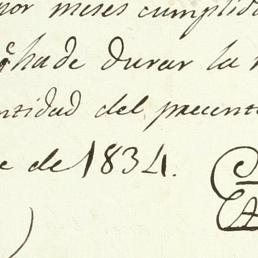 por meses cumplida
q.e ha de durar la
ntidad del presente
e de 1834.